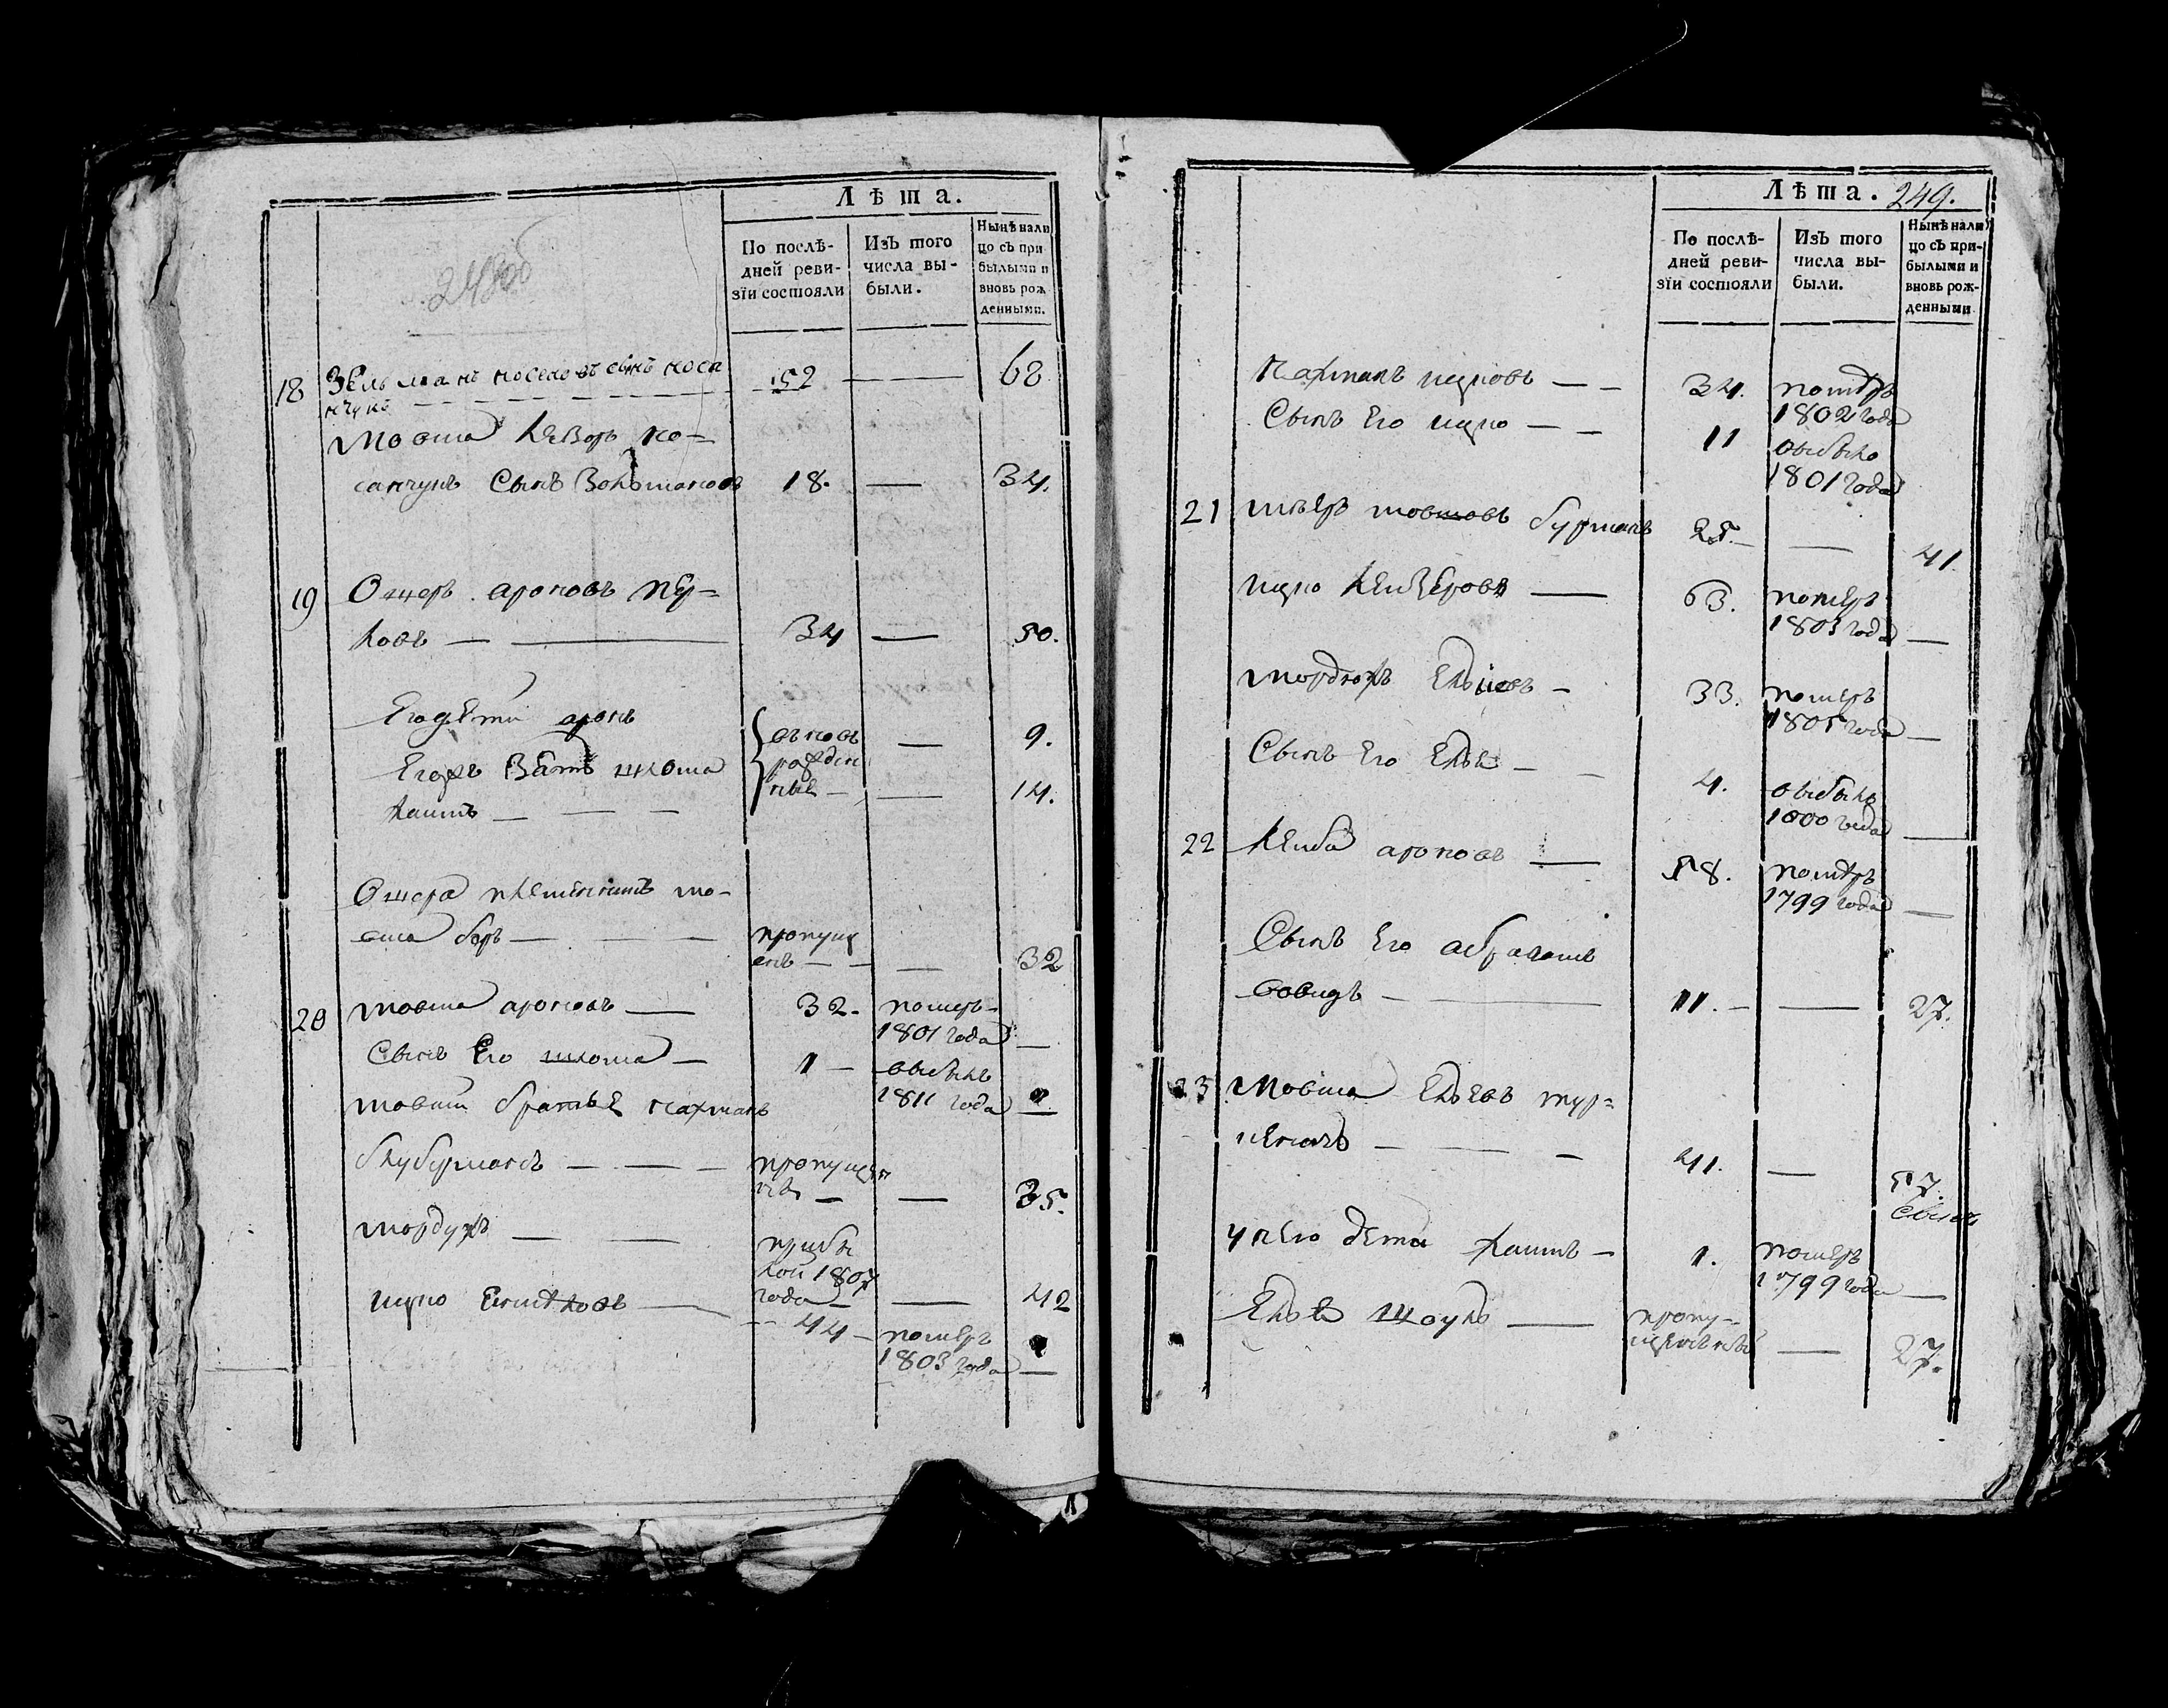 248об
Лѣта.
По послѣ-
дней реви-
зїи состояли
Изъ того
числа вы-
были.
Нынѣ нали
цо съ при
былыми и
вновь рож
денными.
18 Зельманъ носсновъ сынъ
52 — 68
Мовша Лейзоръ ко-
санчукъ Сынъ 18. — 34.
19 Ошеръ ароновъ пер-
ловъ — 34 — 50.
Его дети аронъ
вновь — 9.
Егожъ Зать шлома
рожден
ные — 14.
хаимъ —
Ошера племенникъ мо-
вша беръ — пропущ
енъ — — 32
20 мовша ароновъ — 32. померъ
1801 года —
Сынъ Его шлома — 1 — выбылъ
1811 года —
мовши братье нахманъ
— пропущен
ны — — 35.
мордухъ — — прибы
лой 1807
года — — 42
ицко —
44 — померъ
1803 года —
Лѣта. 249.
По послѣ-
дней реви-
зїи состояли
Изъ того
числа вы-
были.
Нынѣ нали
цо съ при-
былыми и
вновь рож-
денными
Нахманъ ицковъ — — 34. померъ
1802 года
Сынъ Его ицко — — 11 выбылъ
1801 года
21 мееръ мовшовъ бурманъ 25. — 41
ицко Лейзеровъ — 63. померъ
1803 года —
мордухъ Ельевъ — 33. померъ
1805 года —
Сынъ Его Елья — — 4. выбылъ
1800 года —
22 Лейба ароновъ — 58. померъ
1799 года —
Сынъ Его абрамъ
довидъ — 11. — — 27.
23 Мовша Ельевъ тур-
— 41. — 57.
у него дети хаимъ — 1. померъ
1799 года —
Елья Шоулъ — пропу-
щенные — 27.